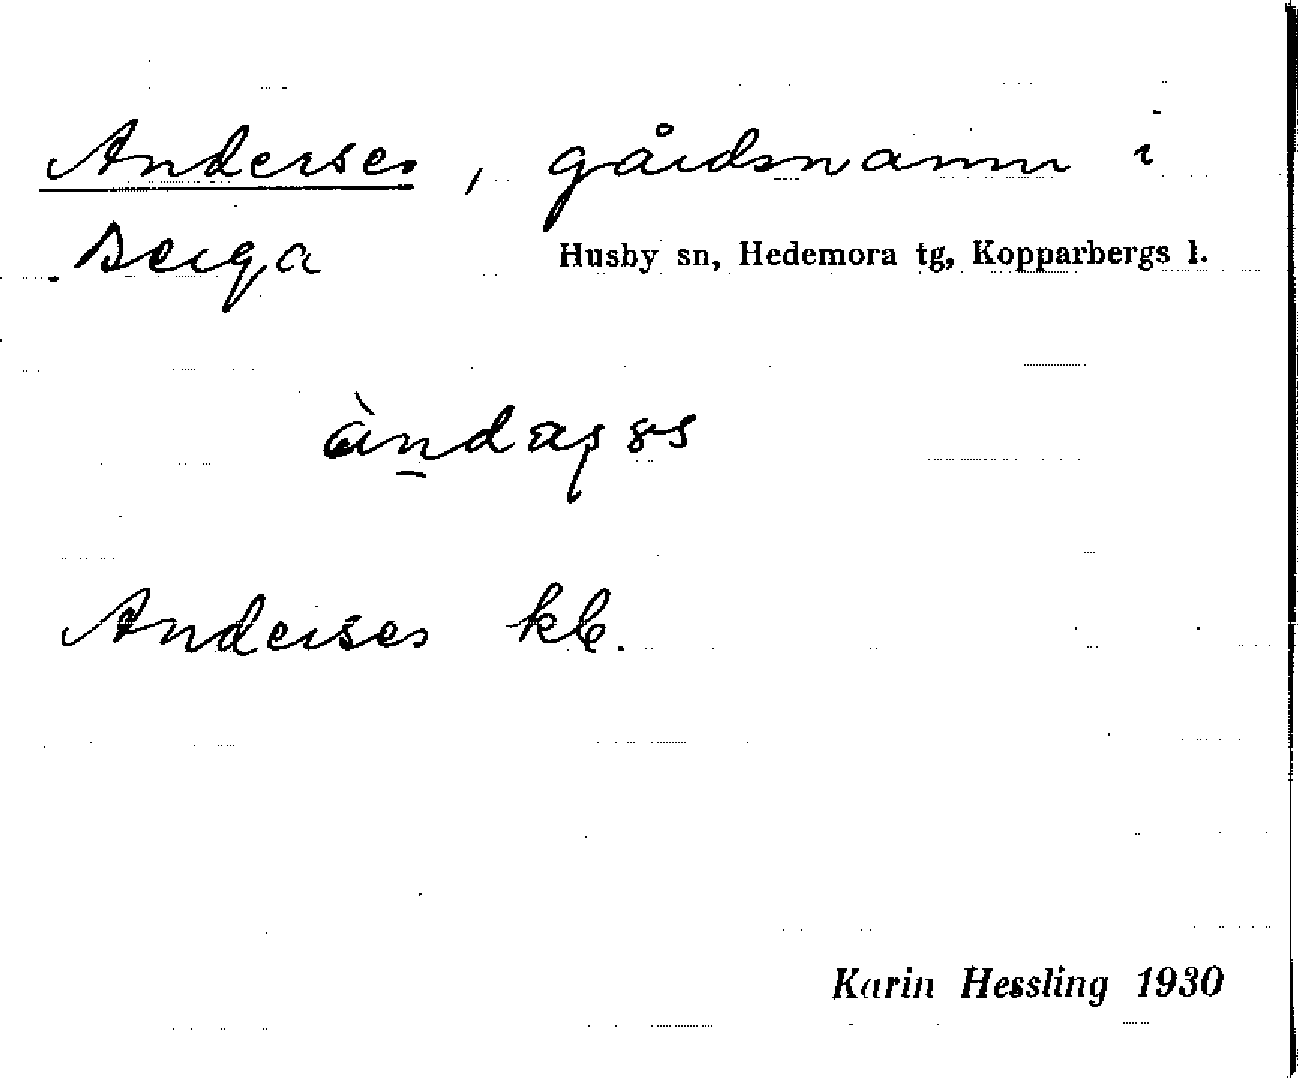 Anderses, gårdsnamn i
Berga Husby sn, Hedemora tg, Kopparbergs l.
Anderses kb.
Karin Hessling 1930